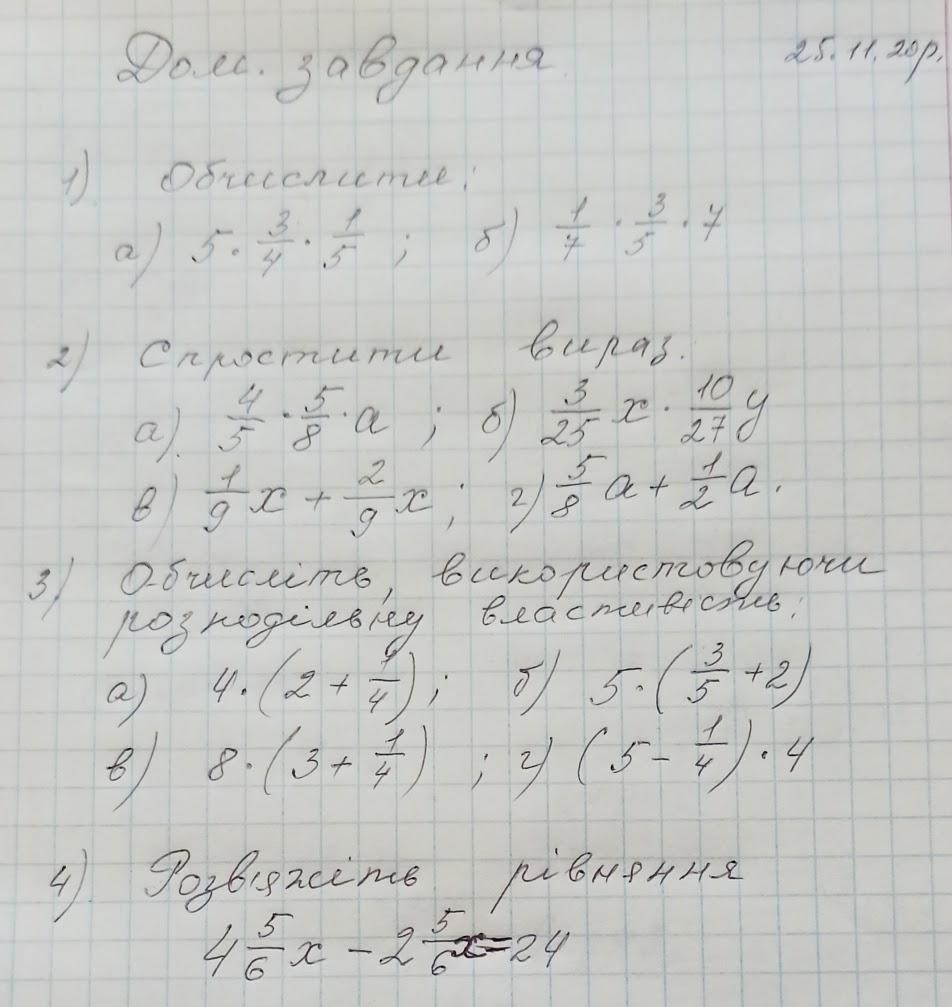 Дом. завдання 25.11.20р.
1) Обчислити:
а) 5 · 3/4 · 1/5 ; б) 1/7 · 3/5 · 7
2) Спростити вираз.
а) 4/5 · 5/8 · а ; б) 3/25 х · 10/27 у
в) 1/9 х + 2/9 х ; г) 5/8 а + 1/2 а .
3) Обчисліть, використовуючи
розподільну властивість:
а) 4 · (2 + 1/4) ; б) 5 · (3/5 + 2)
в) 8 · (3 + 1/4) ; г) (5 - 1/4) · 4
4) Розвіяжіть рівняння
4 5/6 х - 2 5/6 х = 24